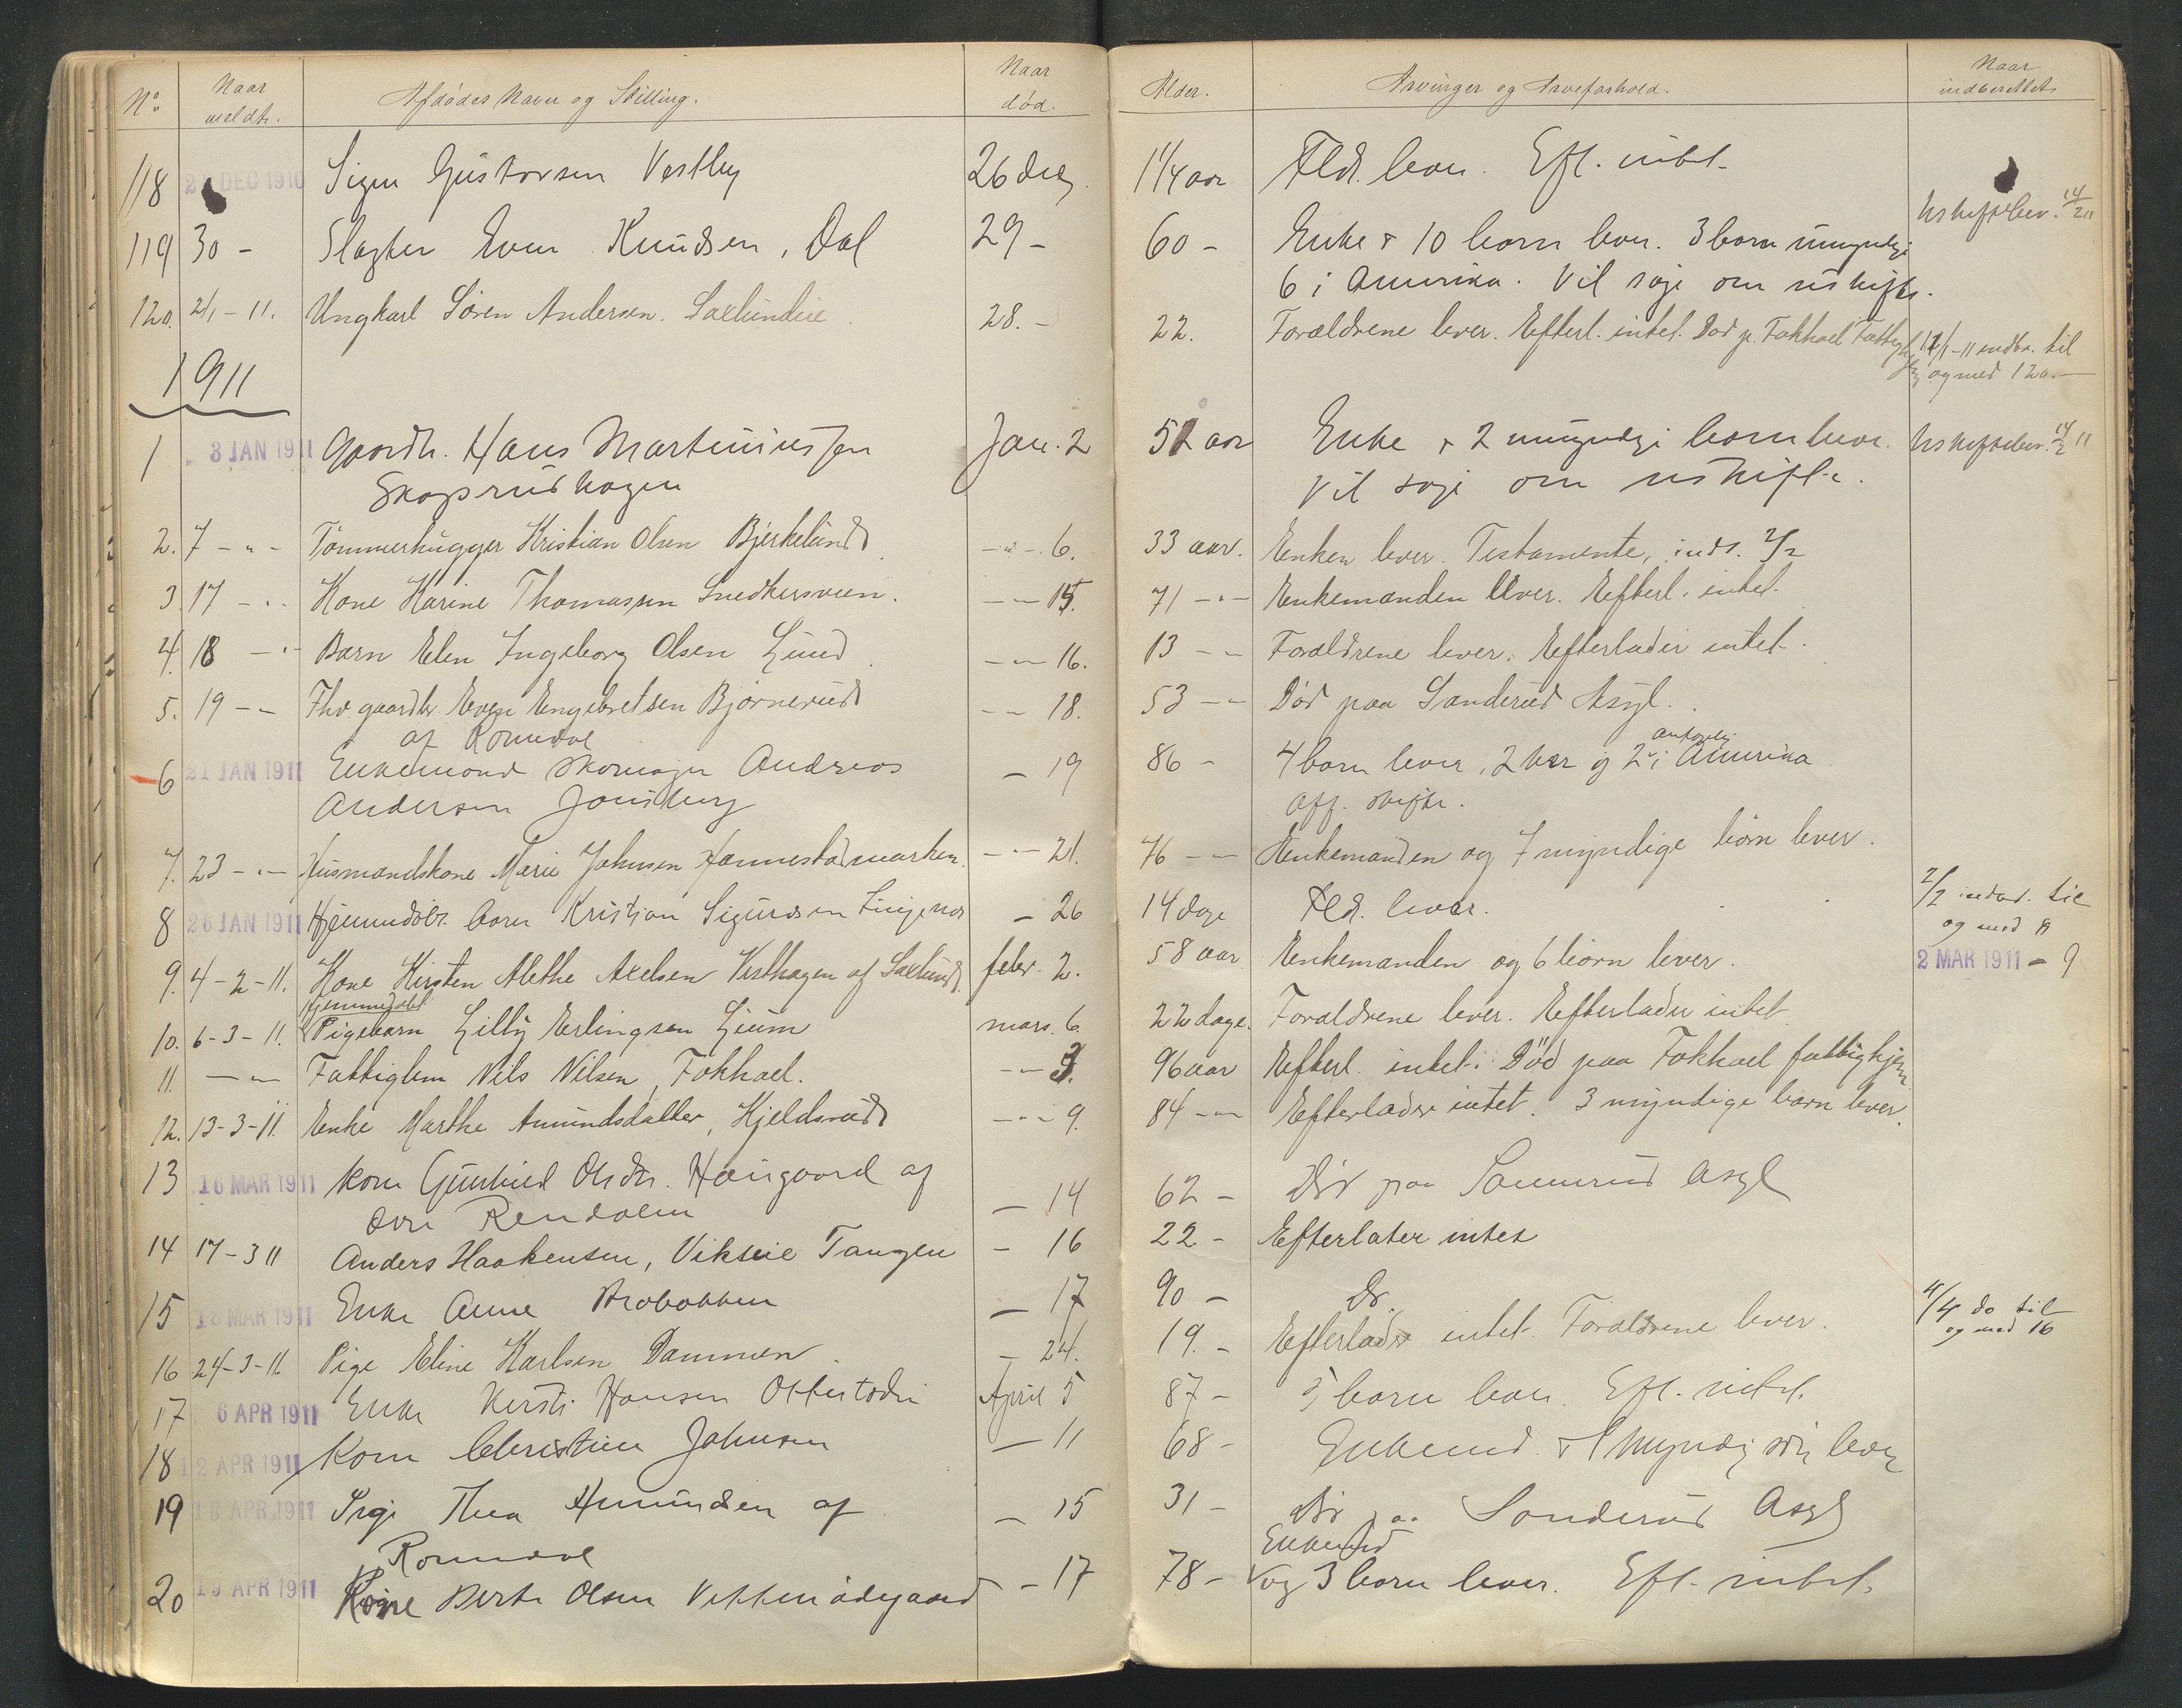 No. Naar meldt. Afdødes Navn og Stilling. Naar død. Alder. Arvinger og Arveforhold. Naar indberettet
118 DEC 1910 Gustavsen Vestby 26 1 1/4 aar lever. Efl. intet. Uskiftebev. 14/2 11
119 30 - Slagter Even Knudsen, Dal 29 - 60 - Enke & 10 born lever. 3 born umyndige
6 i Amerika. Vil søge om uskifte.
120. 2/1 - 11. Ungkarl Søren Andersen. 28. - 22. Forældrene lever. Efterl. intet. Død p. Fokhoel 11/1-11 indb. til
og med 120.
1911
1 3 JAN 1911 Gaardbr. Hans Martiniussen Jan. 2 51 aar Enke & 2 myndige born lever. Uskiftebev. 14/2 11
Skaprudhagen Vil søge om uskifte.
2. 7 - " - Tømmerhugger Kristian Olsen Bjerkelund - " - 6. 33 aar. Enken lever. Testamente, inds. 2/2
3. 17 - " - Kone Karine Thomassen Snedkersveen. - - 15. 71 - " - Enkemanden lever. Efterl. intet.
4. 18 - " - Barn Elen Ingeborg Olsen Lund - - 16. 13 - - Forældrene lever. Efterlader intet.
5. 19 - - Fhv. gaardbr. Even Engebretsen Bjørnerud - - 18. 53 - - Død paa Sanderud Asyl.
af Romedal
6 21 JAN 1911 Enkemand skomager Andreas - 19 86 - 4 born lever, 2 her og 2 i Amerika
Andersen Jønsberg off. skifte.
7. 23 - " - Husmandskone Marie Johnsen Hommestadmarken. - - 21. 76 - - Enkemanden og 7 myndige børn lever.
8 26 JAN 1911 Hjemmedøbt barn Kristian Sigurdsen - 26 14 dage lever. 2/2 indb. til
og med 8
9. 4-2-11. Kone Kirsten Alethe Axelsen Vesthagen af Saxlund. febr. 2. 58 aar Enkemanden og 6 børn lever. 2 MAR 1911 - 9
Hjemmedøbt
10. 6-3-11. Pigebarn Lilly Erlingsen Lium mars. 6. 22 dage. Forældrene lever. Efterlader intet
11. - - Fattiglem Nils Nilsen, Fokhoel. - - 3. 96 aar Efterl. intet. Død paa Fokhoel fattighjem
12. 13-3-11. Enke Marthe Amundsdatter, Kjeldsrud - - 9. 84 - - Efterlader intet. 3 myndige børn lever.
13 16 MAR 1911 Kone Gunhild Olsdtr. Haugaard af - 14 62 - Død paa Sannerud Asyl
Øvre Rendalen
14 17-3 11 Anders Haakensen, Vikseie Tangen - 16 22 - Efterlater intet
15 18 MAR 1911 Enke Anne Brobakken - 17 90 - Do. 4/4 do til
og med 16
16 24-3-11 Pige Eline Karlsen Dammen - 24. 19. - Efterlader intet. Forældrene lever.
17 6 APR 1911 Enke Kersti Hansen April 5 87 - 5 born lever. Efl. intet.
18 12 APR 1911 Kone Christine Johnsen - 11 68 - Enkemd. & 1 myndig søn lever
19 18 APR 1911 Pige Thea Amundsen af - 15 31 - Død paa Sanderud Asyl
Romedal Enkemd
20 19 APR 1911 Kone Berte Olsen Vikkenødegaard - 17 78 - og 3 born lever. Efl. intet.